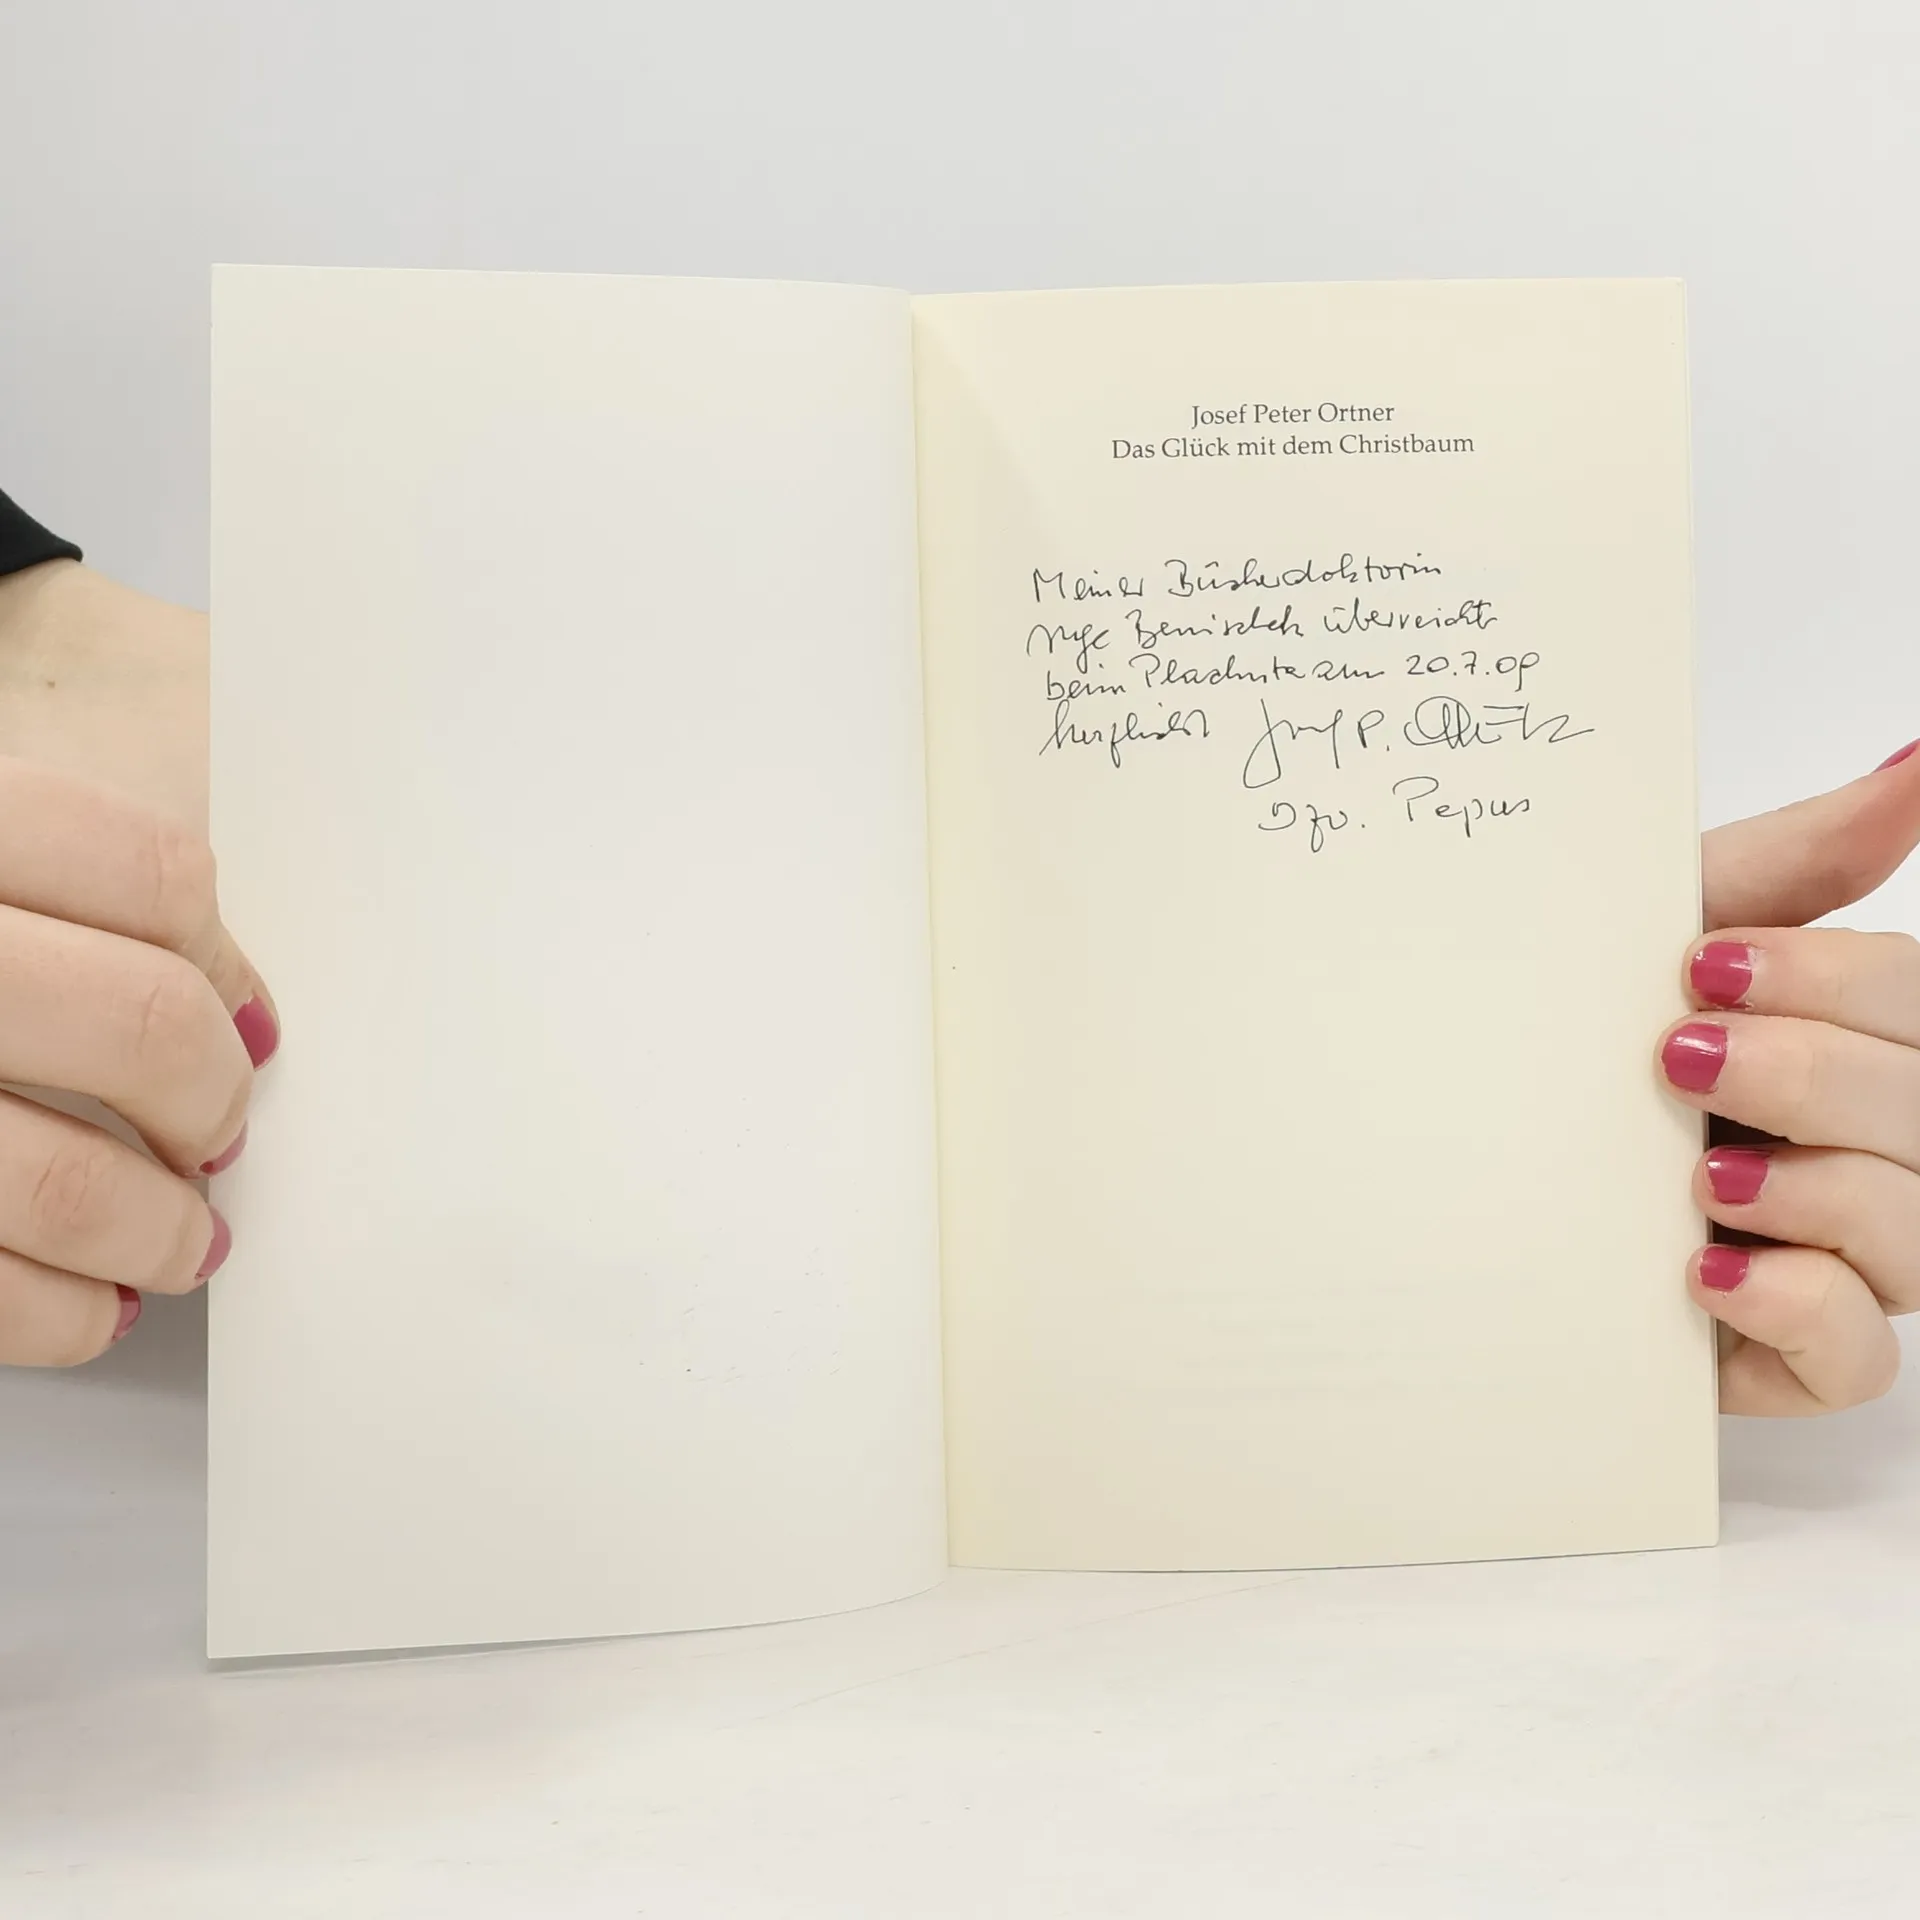 Josef Peter Ortner
Das Glück mit dem Christbaum
Meiner Bücherdoktorin
Benischek überreicht
beim Plachutta am 20.7.09
herzlichst Josef P.
Bzw. Pepus